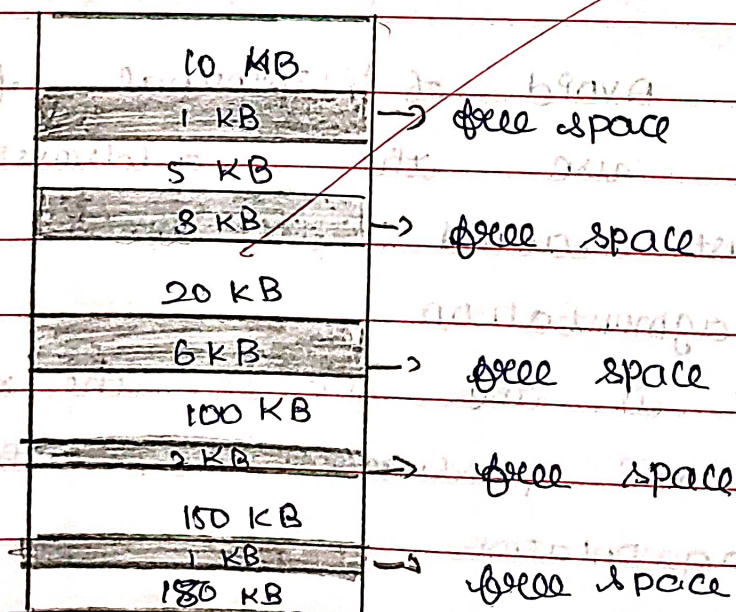 10 KB
1 KB → free space
5 KB
8 KB → free space
20 KB
6 KB → free space
100 KB
2 KB → free space
150 KB
1 KB → free space
180 KB